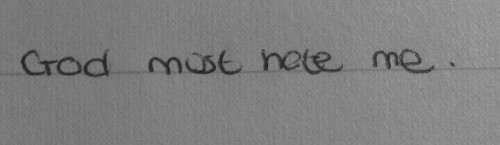 God must hate me.